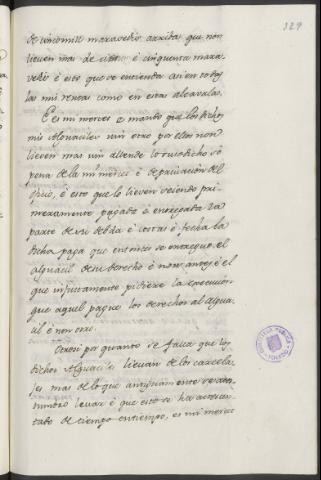 329
de cinco mill maravedis arriba que non
lieven mas de ciento é cinquenta mara-
vedis é esto que se entienda asi en todas
las mis rentas como en estas alcavalas.
E es mi merced é mando que los dichos
mis Alguaciles nin otro por ellos non
lieven mas nin allende lo susodicho só
pena de la mi merced é de privacion del
oficio, é esto que lo lieven seiendo pri-
meramente pagada é entregada la
parte de su debda é costas é fecha la
dicha paga que entonces se entregue el
alguacil de su derecho é non antes é el
que injustamente pidiere la execucion
que aquel pague los derechos al algua-
cil é non otro.
Otrosi por quanto se falla que los
dichos Alguaciles lievan de los carcela-
jes mas de lo que antiguamente se acos-
tumbró levar é que esto se ha acrecen-
tado de tiempo en tiempo, es mi merced
BIBLIOTECA PUBLICA
TOLEDO